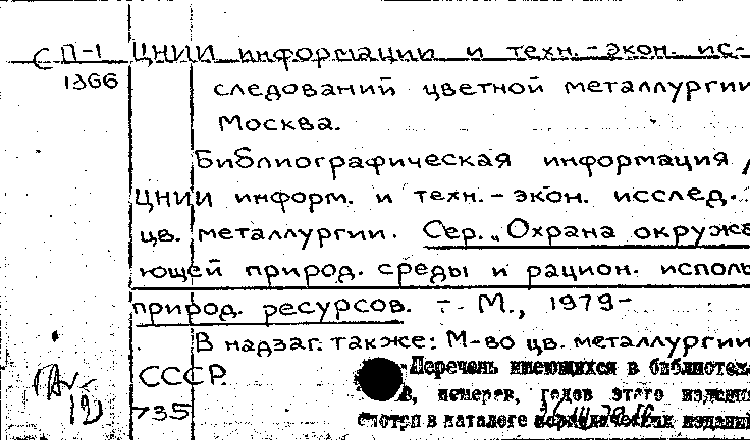 С П-1 ЦНИИ информации и техн.-экон. ис-
1366
следований цветной металлургии
Москва.
Библиографическая информация /
ЦНИИ информ. и техн.-экон. исслед.
цв. металлургии. Сер. „Охрана окружа
ющей природ. среды и рацион. исполь
природ. ресурсов. - М., 1979-
В надзаг. также: М-во цв. металлургии
СССР.
Перечень имеющихся в библиотеке
в, номеров, годов этого издания
735
смотри в каталоге периодических издани